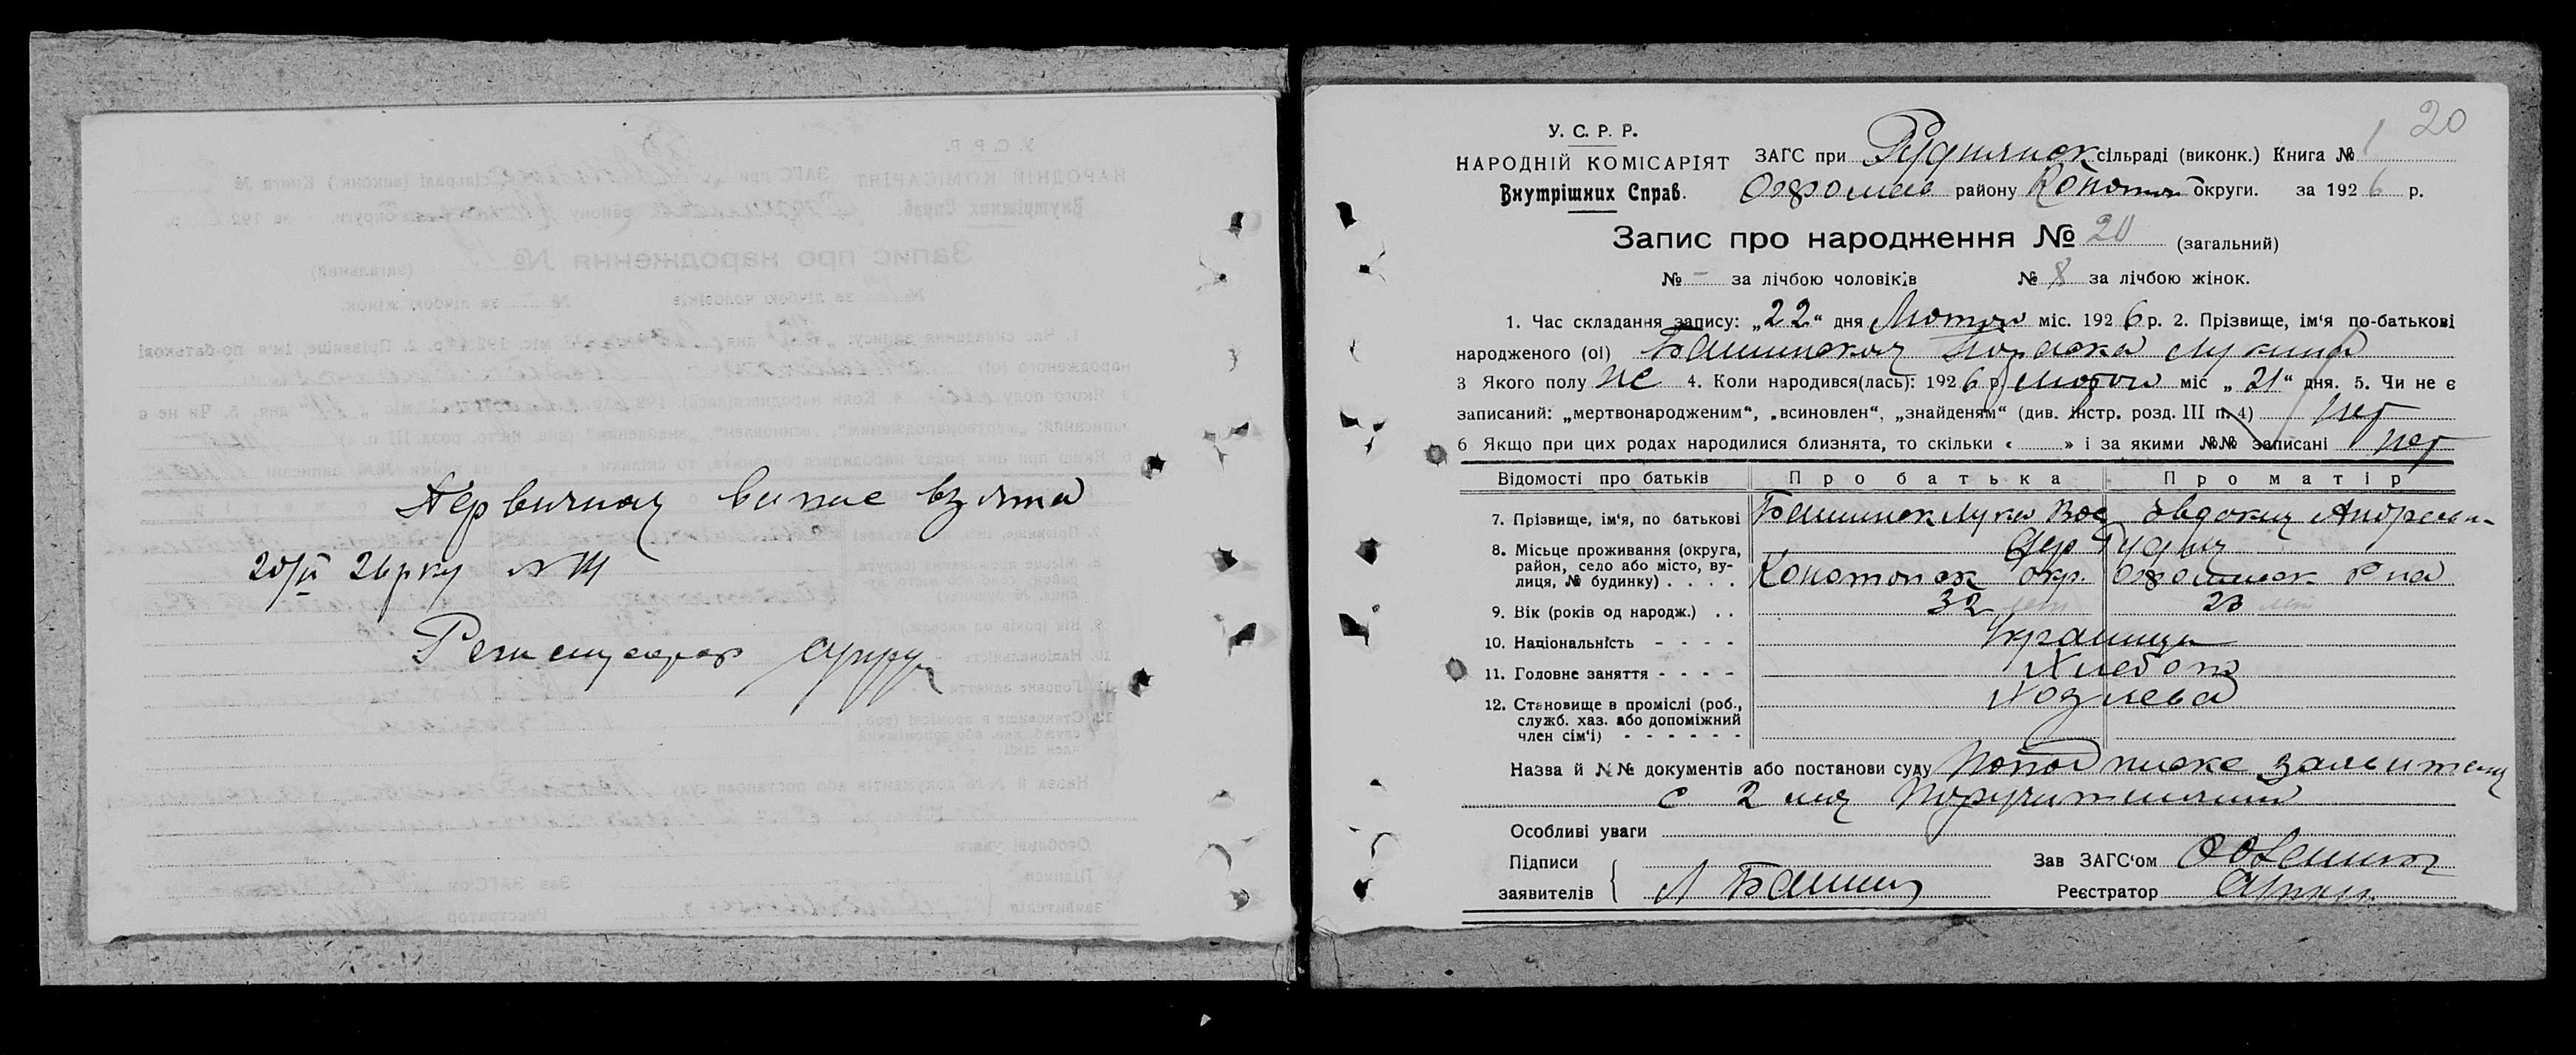 Первичная випис взята
20/IV 26 р ку № 111
Регистратор
20
У. С. Р. Р.
НАРОДНІЙ КОМІСАРІЯТ
Внутрішних Справ.
ЗАГС при Руднянск сільраді (виконк.) Книга № 1
району Конотоп округи. за 1926 р.
Запис про народження № 20 (загальний)
№ - за лічбою чоловіків № 8 за лічбою жінок.
1. Час складання запису: „22“ дня Лютого міс. 1926 р. 2. Прізвище, ім'я по-батькові
народженого (ої) Башинская Параска Лукина
3 Якого полу же 4. Коли народився(лась): 1926 р. Лютого міс „21“ дня. 5. Чи не є
записаний: „мертвонародженим“, „всиновлен“, „знайденям“ (див. інстр. розд. III п. 4) Нет
6 Якщо при цих родах народилися близнята, то скільки « » і за якими №№ записані Нет
Відомості про батьків Про батька Про матір
7. Прізвище, ім'я, по батькові Башинск Лука Вас Овдокия Андреевн
8. Місьце проживання (округа, район, село або місто, вулиця, № будинку) . . . . дер Рудня
Конотопск окр. р на
9. Вік (років од народж.) . . 32 лет 23 лет
10. Національність - - - - Украинци
11. Головне заняття - - - - Хлебоп
12. Становище в проміслі (роб.,
служб. хаз. або допоміжний
член сім'ї) - - - - - -
Назва й №№ документів або постанови суду По подписке заявителя
с 2 мя поручителями
Особливі уваги
Підписи
заявителів Л Башин
Зав ЗАГС'ом
Реєстратор